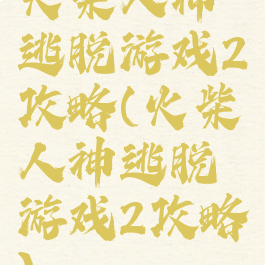 火柴人神
逃脱游戏2
攻略(火柴
人神逃脱
游戏2攻略
)